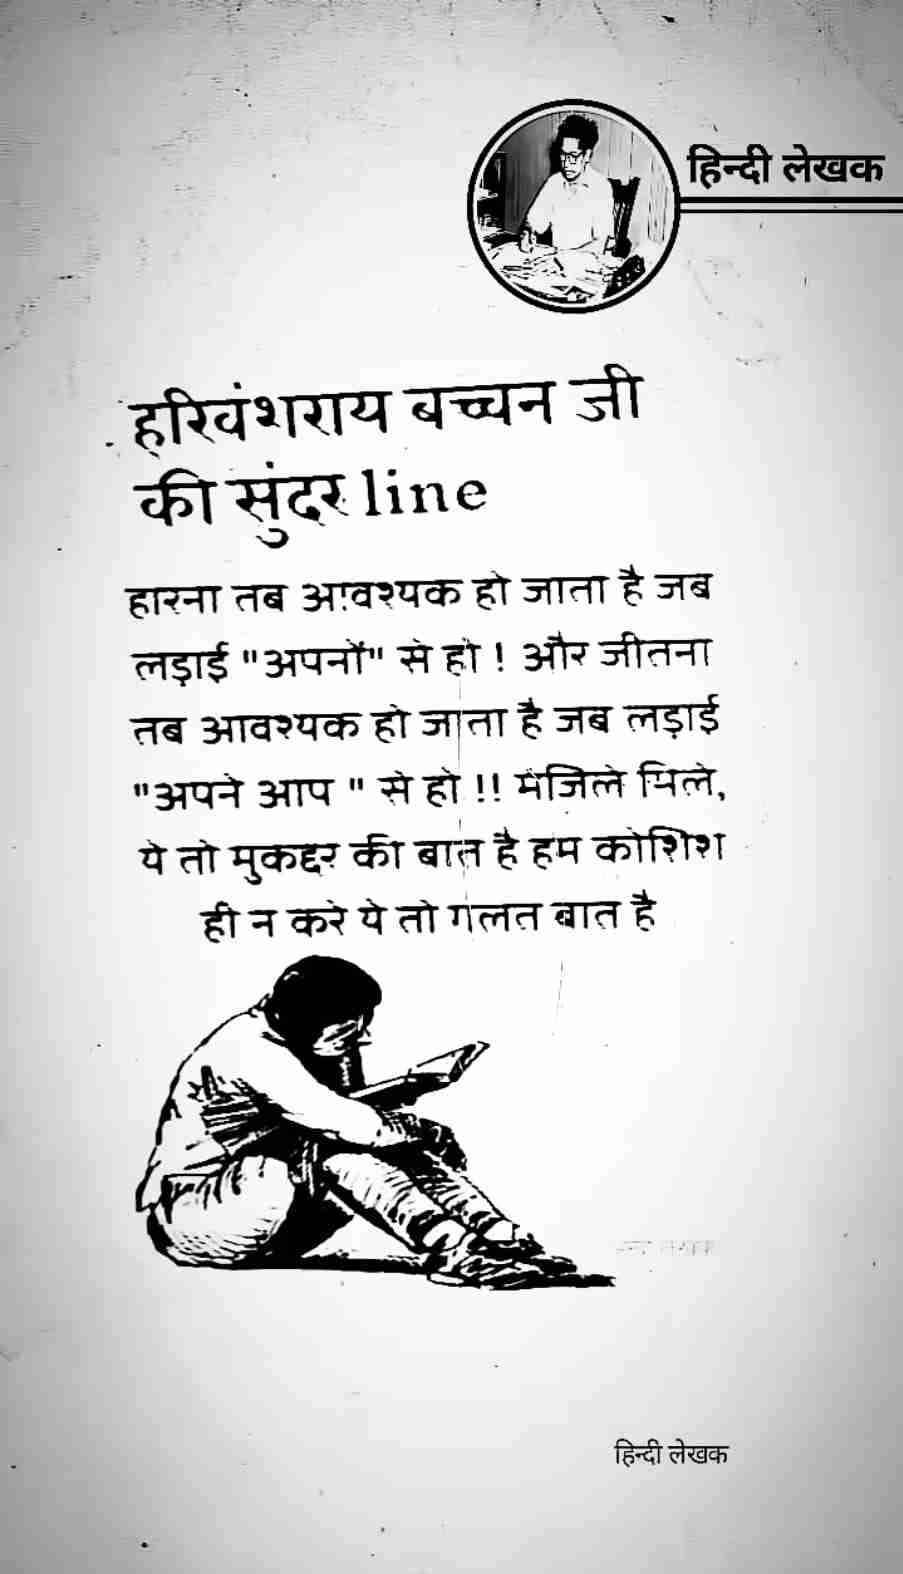 हिन्दी लेखक
हरिवंशराय बच्चन जी
की सुंदर line
हारना तब आवश्यक हो जाता है जब
लड़ाई "अपनों" से हो ! और जीतना
तब आवश्यक हो जाता है जब लड़ाई
"अपने आप " से हो !! मंजिले मिले,
ये तो मुकद्दर की बात है हम कोशिश
ही न करे ये तो गलत बात है
हिन्दी लेखक